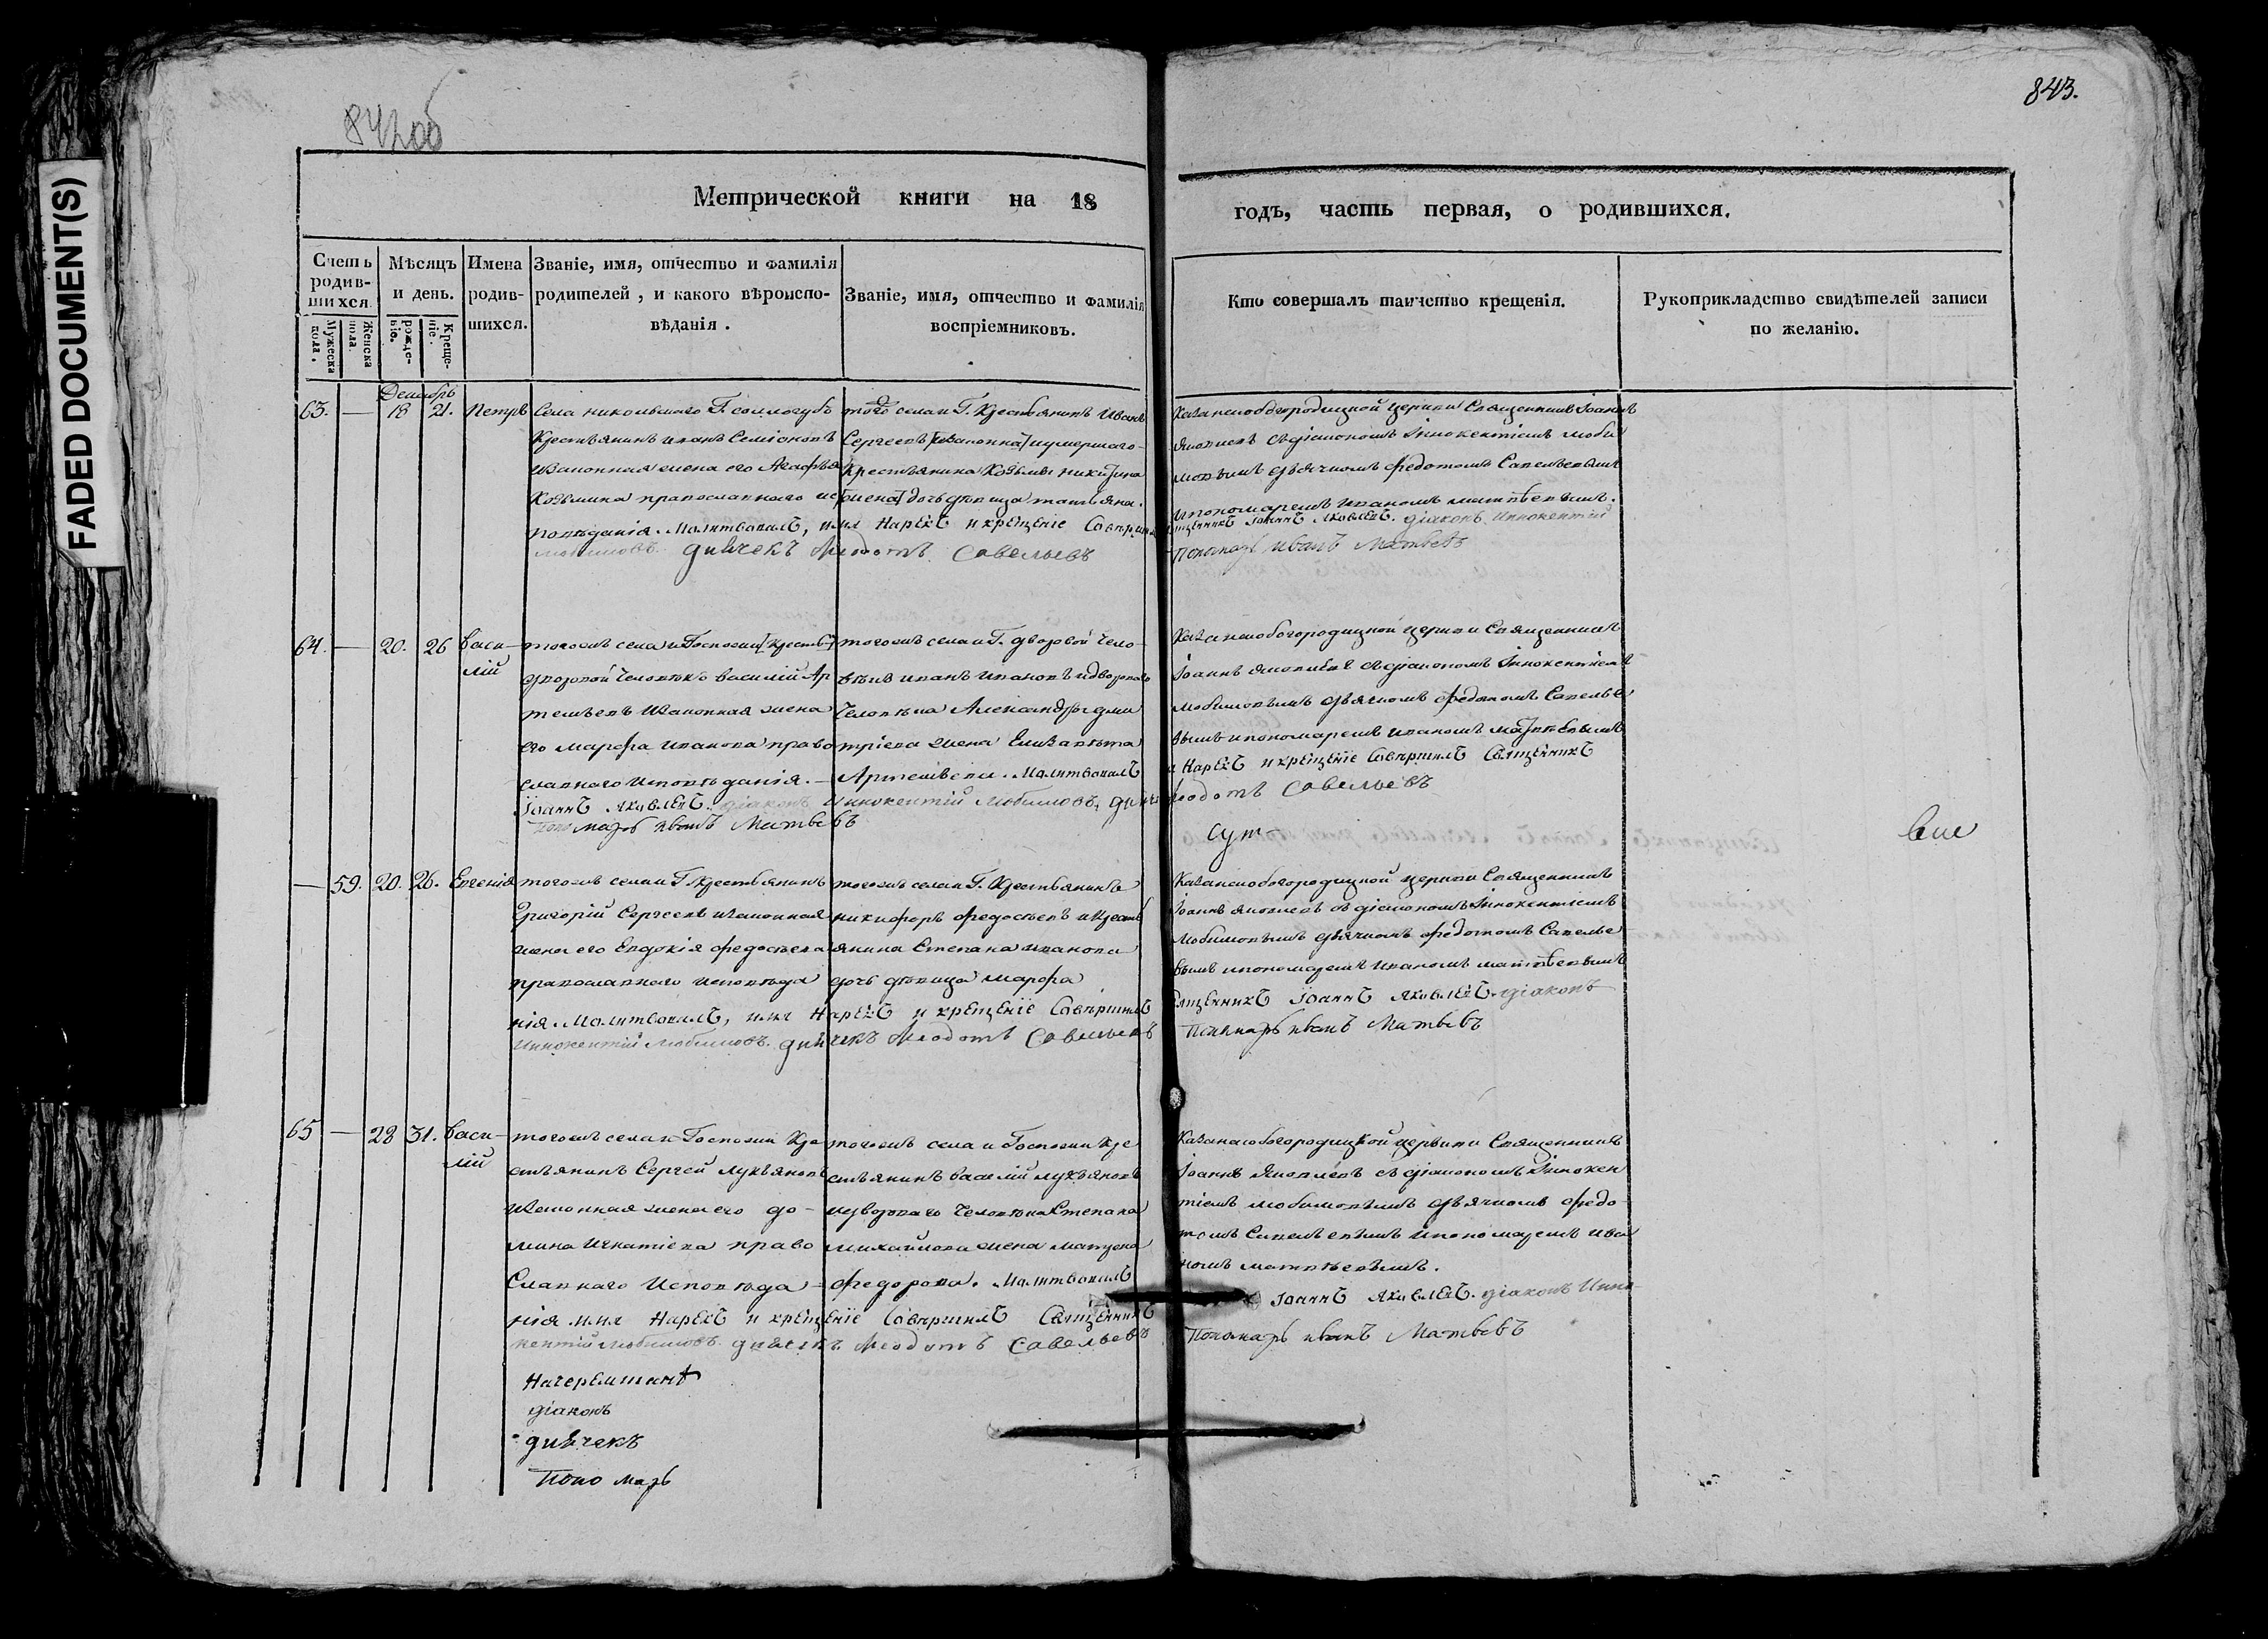 FADED DOCUMENT(S)
842об
843.
Метрической книги на 18
годъ, часть первая, о родившихся.
Счетъ родив-шихся.
Мужеска пола.
Женска пола.
Мѣсяцъ и день.
рожде-ніе.
Креще-ніе.
Имена родив-шихся.
Званіе, имя, отчество и фамилія родителей, и какого вѣроиспо-вѣданія.
Званіе, имя, отчество и фамилія воспріемниковъ.
Кто совершалъ таинство крещенія.
Рукоприкладство свидѣтелей записи по желанію.
Декабрь
63. — 18 21. Петръ
Села никольскаго Г.
Крестьянинъ иванъ Семіоновъ
законная жена его Агафья
Козьмина православнаго ис
повѣданія. Молитвовалъ, имя Нарекъ и крещеніе Соверши
любимовъ. дьячекъ Ѳеодотъ Савельевъ
того села и Г. Крестьянинъ Иванъ
Сергеевъ умершаго
крестьянина Козьмы никитина
дочь дѣвица татьяна.
Казанскобогородицкой церкви Священникъ Іоаннъ
Яковлевъ съ діакономъ Іннокентіемъ люби
мовымъ дьячкомъ федотомъ Савельевымъ
и пономаремъ иваномъ матвѣевымъ.
щенникъ Іоаннъ Яковлевъ. діаконъ Иннокентій
Пономарь иванъ Матвевъ
64. — 20. 26 Васи-
лій
тогожъ села и Господина
дворовой человѣкъ василій Ар
темьевъ законная жена
его марфа иванова право
славнаго исповѣданія. —
Іоаннъ Яковлевъ. діаконъ Иннокентій Любимовъ, дьяч
Пономарь иванъ Матвевъ
тогожъ села и Г. дворовой чело-
вѣкъ иванъ ивановъ и двороваго
человѣка Александра дми
тріева жена Елизавѣта
Артемьева. Молитвовалъ
Казанскобогородицкой церкви Священникъ
Іоаннъ Яковлевъ съ діакономъ Іннокентіемъ
Любимовымъ дьячкомъ федотомъ Савелье
вымъ и пономаремъ иваномъ матвѣевымъ
и Нарекъ и крещеніе Совершилъ Священникъ
Ѳеодотъ Савельевъ
сут
вие
— 59. 20. 26. Евгенія
тогожъ села и Г. Крестьянинъ
Григорій Сергеевъ законная
жена его Евдокія федосѣева
православнаго исповѣда
нія. Молитвовалъ, имя Нарекъ и крещеніе Совершилъ
Иннокентій Любимовъ. дьячекъ Ѳеодотъ Савельевъ
тогожъ села и Г. Крестьянинъ
никифоръ федосѣевъ и Крестъ
янина Степана иванова
дочь дѣвица марфа
Казанскобогородицкой церкви Священникъ
Іоаннъ Яковлевъ съ діакономъ Іннокентіемъ
Любимовымъ дьячкомъ федотомъ Савелье
вымъ и пономаремъ иваномъ матвѣевымъ
Священникъ Іоаннъ Яковлевъ. діаконъ
Пономарь иванъ Матвевъ
65 — 28 31. Васи-
лій
тогожъ села и Господина Кре
стьянинъ Сергей лукьяновъ
законная жена его до-
мина игнатіева право
Славнаго Исповѣда-
нія. имя Нарекъ и крещеніе Совершилъ Священникъ
кентій Любимовъ. дьячекъ Ѳеодотъ Савельевъ
тогожъ села и Господина Кре
стьянинъ василій лукьяновъ
и двороваго человѣка Степана
михайлова жена матрена
федорова. Молитвовалъ
Казанскобогородицкой церкви Священникъ
Іоаннъ Яковлевъ съ діакономъ Іннокен
тіемъ любимовымъ дьячкомъ федо
томъ Савельевымъ и пономаремъ ива
номъ матвѣевымъ.
Іоаннъ Яковлевъ. діаконъ Инно-
Пономарь иванъ Матвевъ
діаконъ
дьячекъ
Пономарь